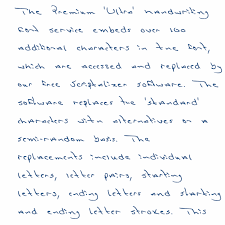 The Premium 'Ultra' Handwriting
font service embeds over 100
additional characters in the font,
which are accessed and replaced by
our free Scriptalizer software. The
software replaces the 'standard'
characters with alternatives on a
semi-random basis. The
replacements include individual
letters, letter pairs, starting
letters, ending letters and starting
and ending letter strokes. This